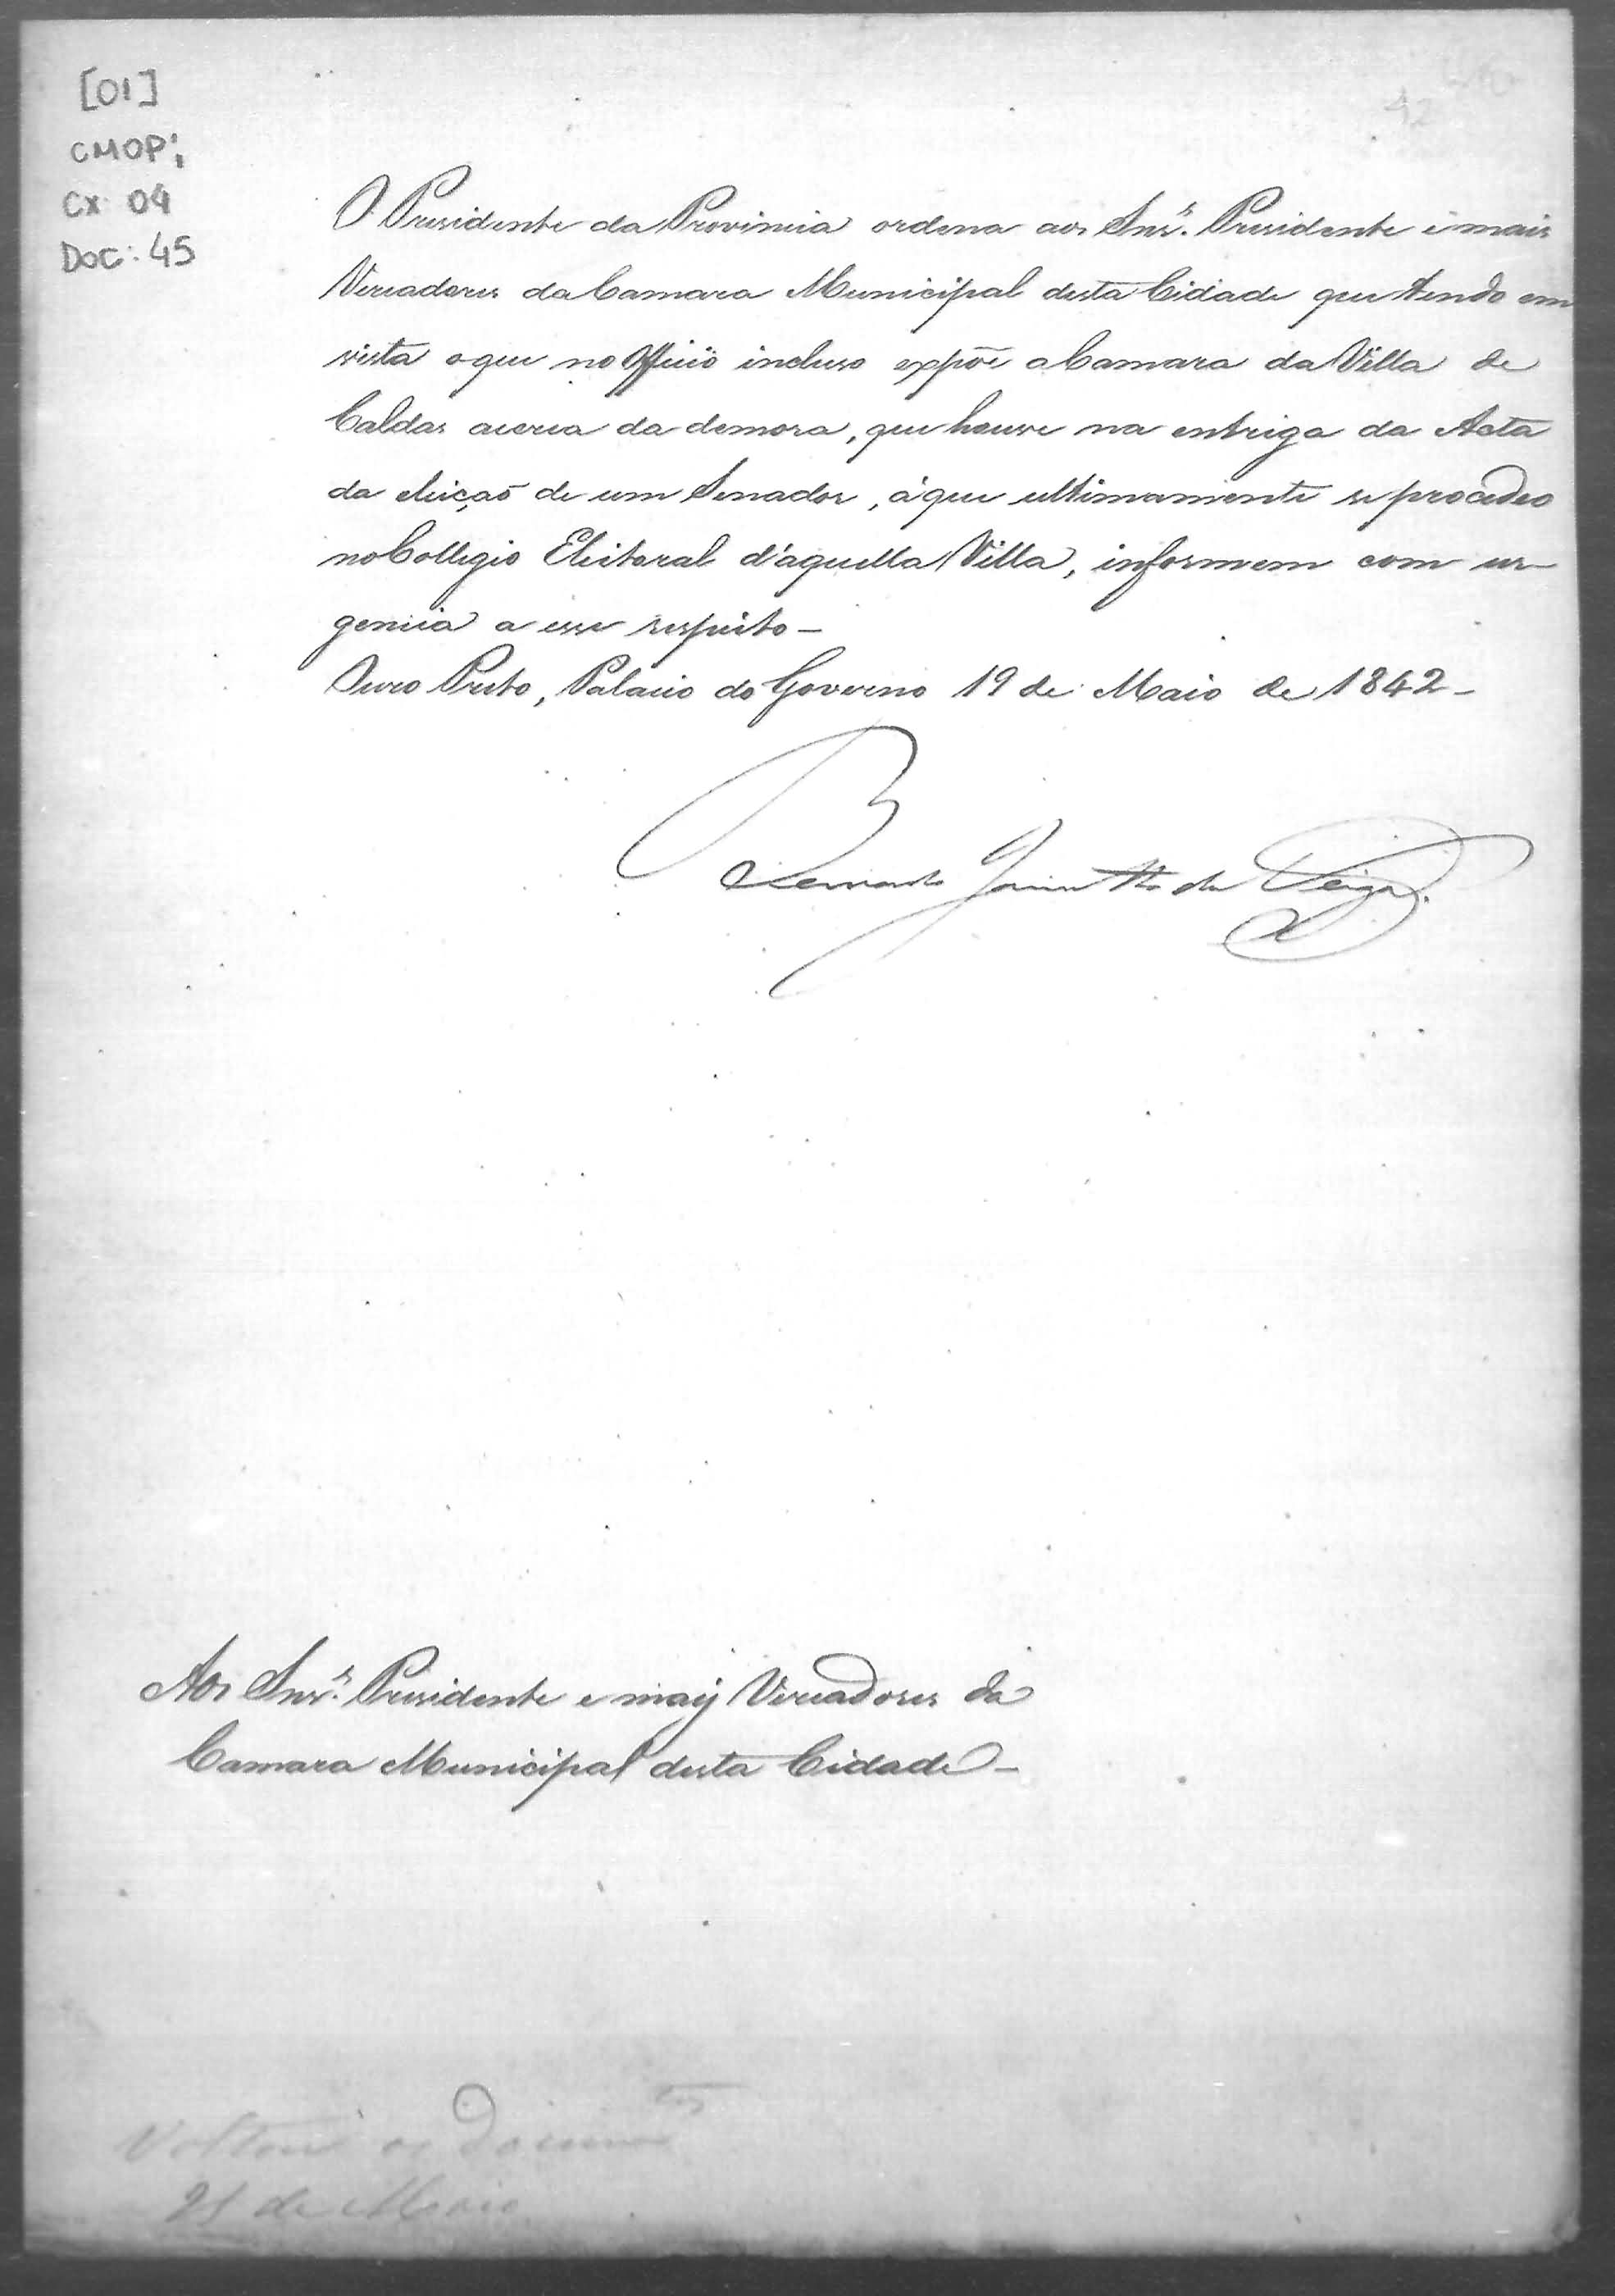 [01]
CMOP;
Cx: 04
Doc: 45
42
O Presidente da Provincia ordena aos Snr.s Presidente e mais
Vereadores da Camara Municipal desta Cidade que tendo em
vista o que no Officio incluso expõe a Camara da Villa de
Caldas acerca da demora, que houve na entrega da Acta
da eleiçaõ de um Senador, á que ultimamente se procedeo
no Collegio Eleitoral d'aquella Villa, informem com ur-
gencia a esse respeito -
Ouro Preto, Palacio do Governo 19 de Maio de 1842 -
Bernardo Jacintho da Veiga.
Aos Snr.s Presidente e mais Vereadores da
Camara Municipal desta Cidade -
os Docum.tos
21 de Maio